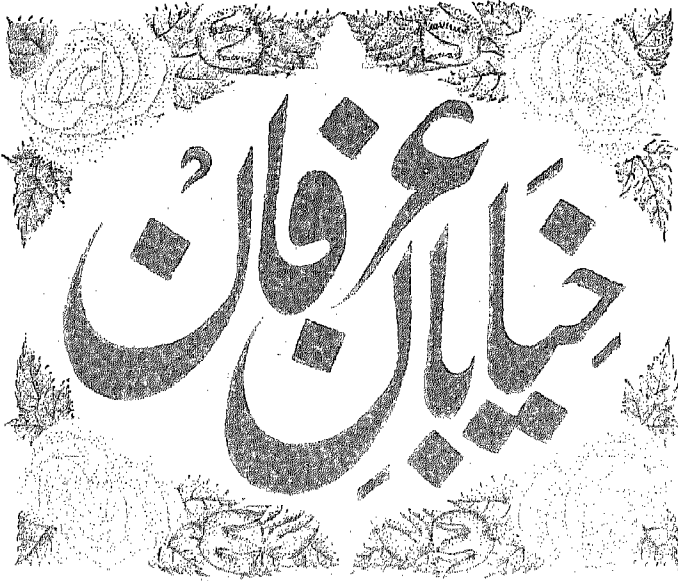 خِیَابانِ عرفانُ